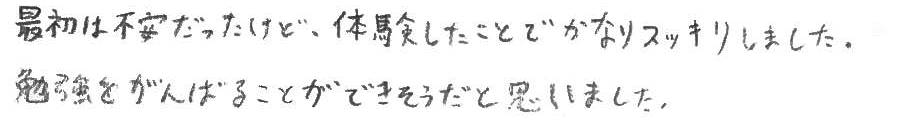 最初は不安だったけど、体験したことでかなりスッキリしました。
勉強をがんばることができそうだと思いました。